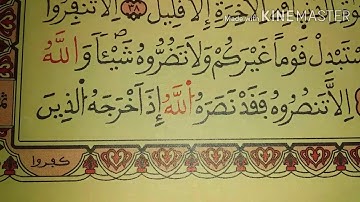 Made with KINEMASTER
الْأَخِرَةِ إِلَّا قَلِيلٌ ٣٨ إِلَّا تَنفِرُوا
يَسْتَبْدِلْ قَوْمًا غَيْرَكُمْ وَلَا تَضُرُّوهُ شَيْـًٔا وَاللَّهُ
إِلَّا تَنصُرُوهُ فَقَدْ نَصَرَهُ اللَّهُ إِذْ أَخْرَجَهُ الَّذِينَ
كَفَرُوا